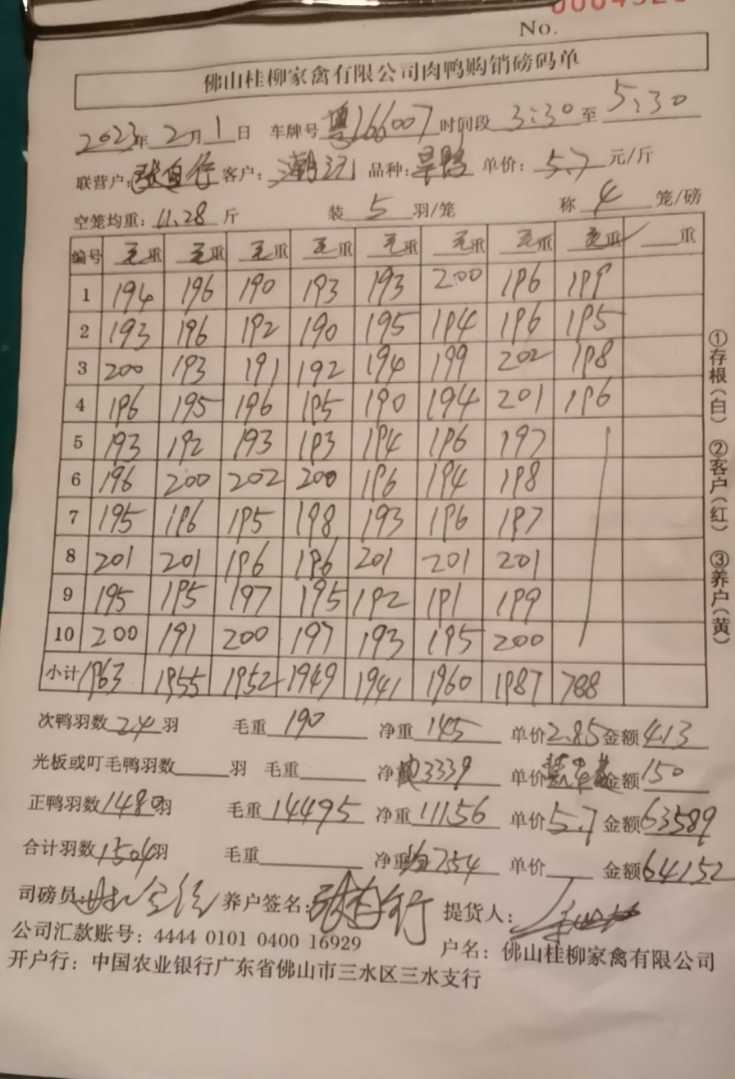 No.
佛山桂柳家禽有限公司肉鸭购销磅码单
2023年2月1日 车牌号 粤166007 时间段 3:30 至 5:30
联营户: 客户: 品种: 单价: 5.7 元/斤
空笼均重: 11.28 斤 装 5 羽/笼 称 4 笼/磅
编号 毛重 毛重 毛重 毛重 毛重 毛重 毛重 毛重 重
1 194 196 190 193 193 200 196 199
2 193 196 192 190 195 194 196 195
3 200 193 191 192 194 199 202 198
4 196 195 196 195 190 194 201 196
5 193 192 193 193 194 196 197
6 196 200 202 200 196 194 198
7 195 196 195 198 193 196 197
8 201 201 196 196 201 201 201
9 195 195 197 195 192 191 199
10 200 191 200 197 193 195 200
小计 1963 1955 1952 1949 1941 1960 1987 788
①存根(白) ②客户(红) ③养户(黄)
次鸭羽数 24 羽 毛重 190 净重 145 单价 2.85 金额 413
光板或叮毛鸭羽数 羽 毛重 净 3339 单价 金额 150
正鸭羽数 1480 羽 毛重 14495 净重 11156 单价 5.7 金额 63589
合计羽数 1504 羽 毛重 净重 7.54 单价 金额 64152
司磅员: 养户签名: 提货人:
公司汇款账号: 4444 0101 0400 16929 户名: 佛山桂柳家禽有限公司
开户行: 中国农业银行广东省佛山市三水区三水支行